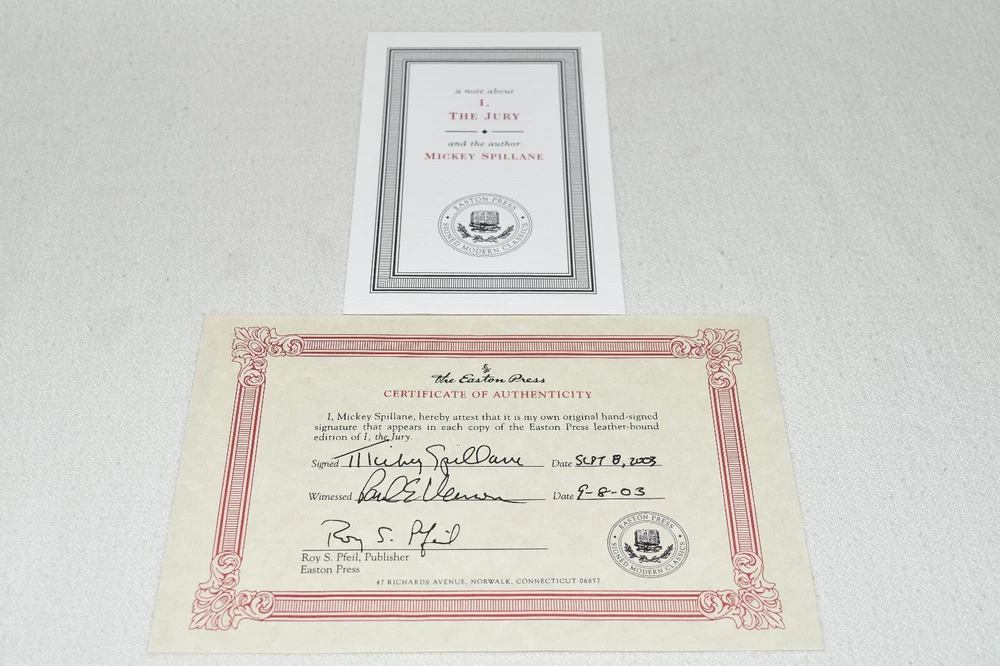 a note about
I,
THE JURY
and the author
MICKEY SPILLANE
EASTON PRESS
SIGNED MODERN CLASSICS
The Easton Press
CERTIFICATE OF AUTHENTICITY
I, Mickey Spillane, hereby attest that it is my own original hand-signed
signature that appears in each copy of the Easton Press leather-bound
edition of I, the Jury.
Signed Mickey Spillane Date SEPT 8, 2003
Witnessed Date 9-8-03
Roy S. Pfeil
Roy S. Pfeil, Publisher
Easton Press
EASTON PRESS
SIGNED MODERN CLASSICS
47 RICHARDS AVENUE, NORWALK, CONNECTICUT 06857